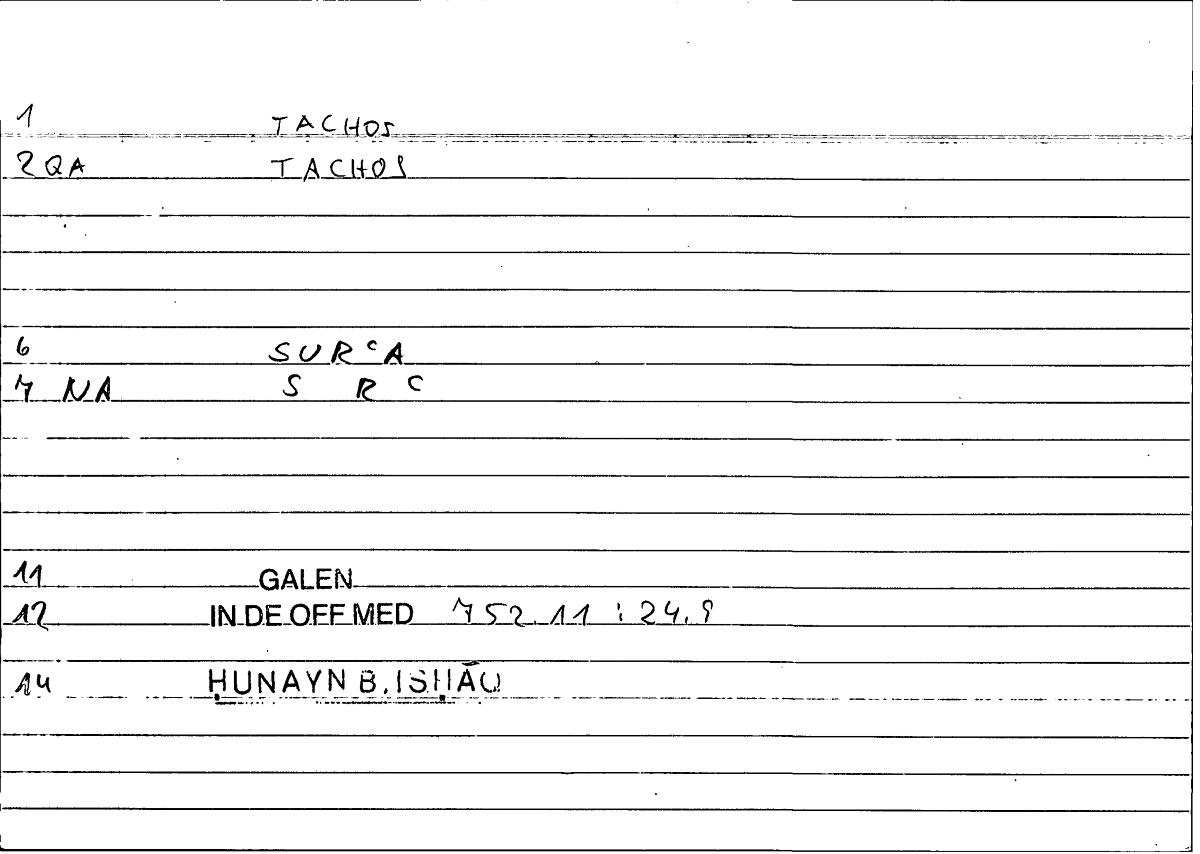 1 TACHOS
2 QA TACHOS
6 SURᶜA
7 NA S R ᶜ
11 GALEN
12 IN DE OFF MED 752.11 : 24.9
14 ḤUNAYN B. ISḤĀQ